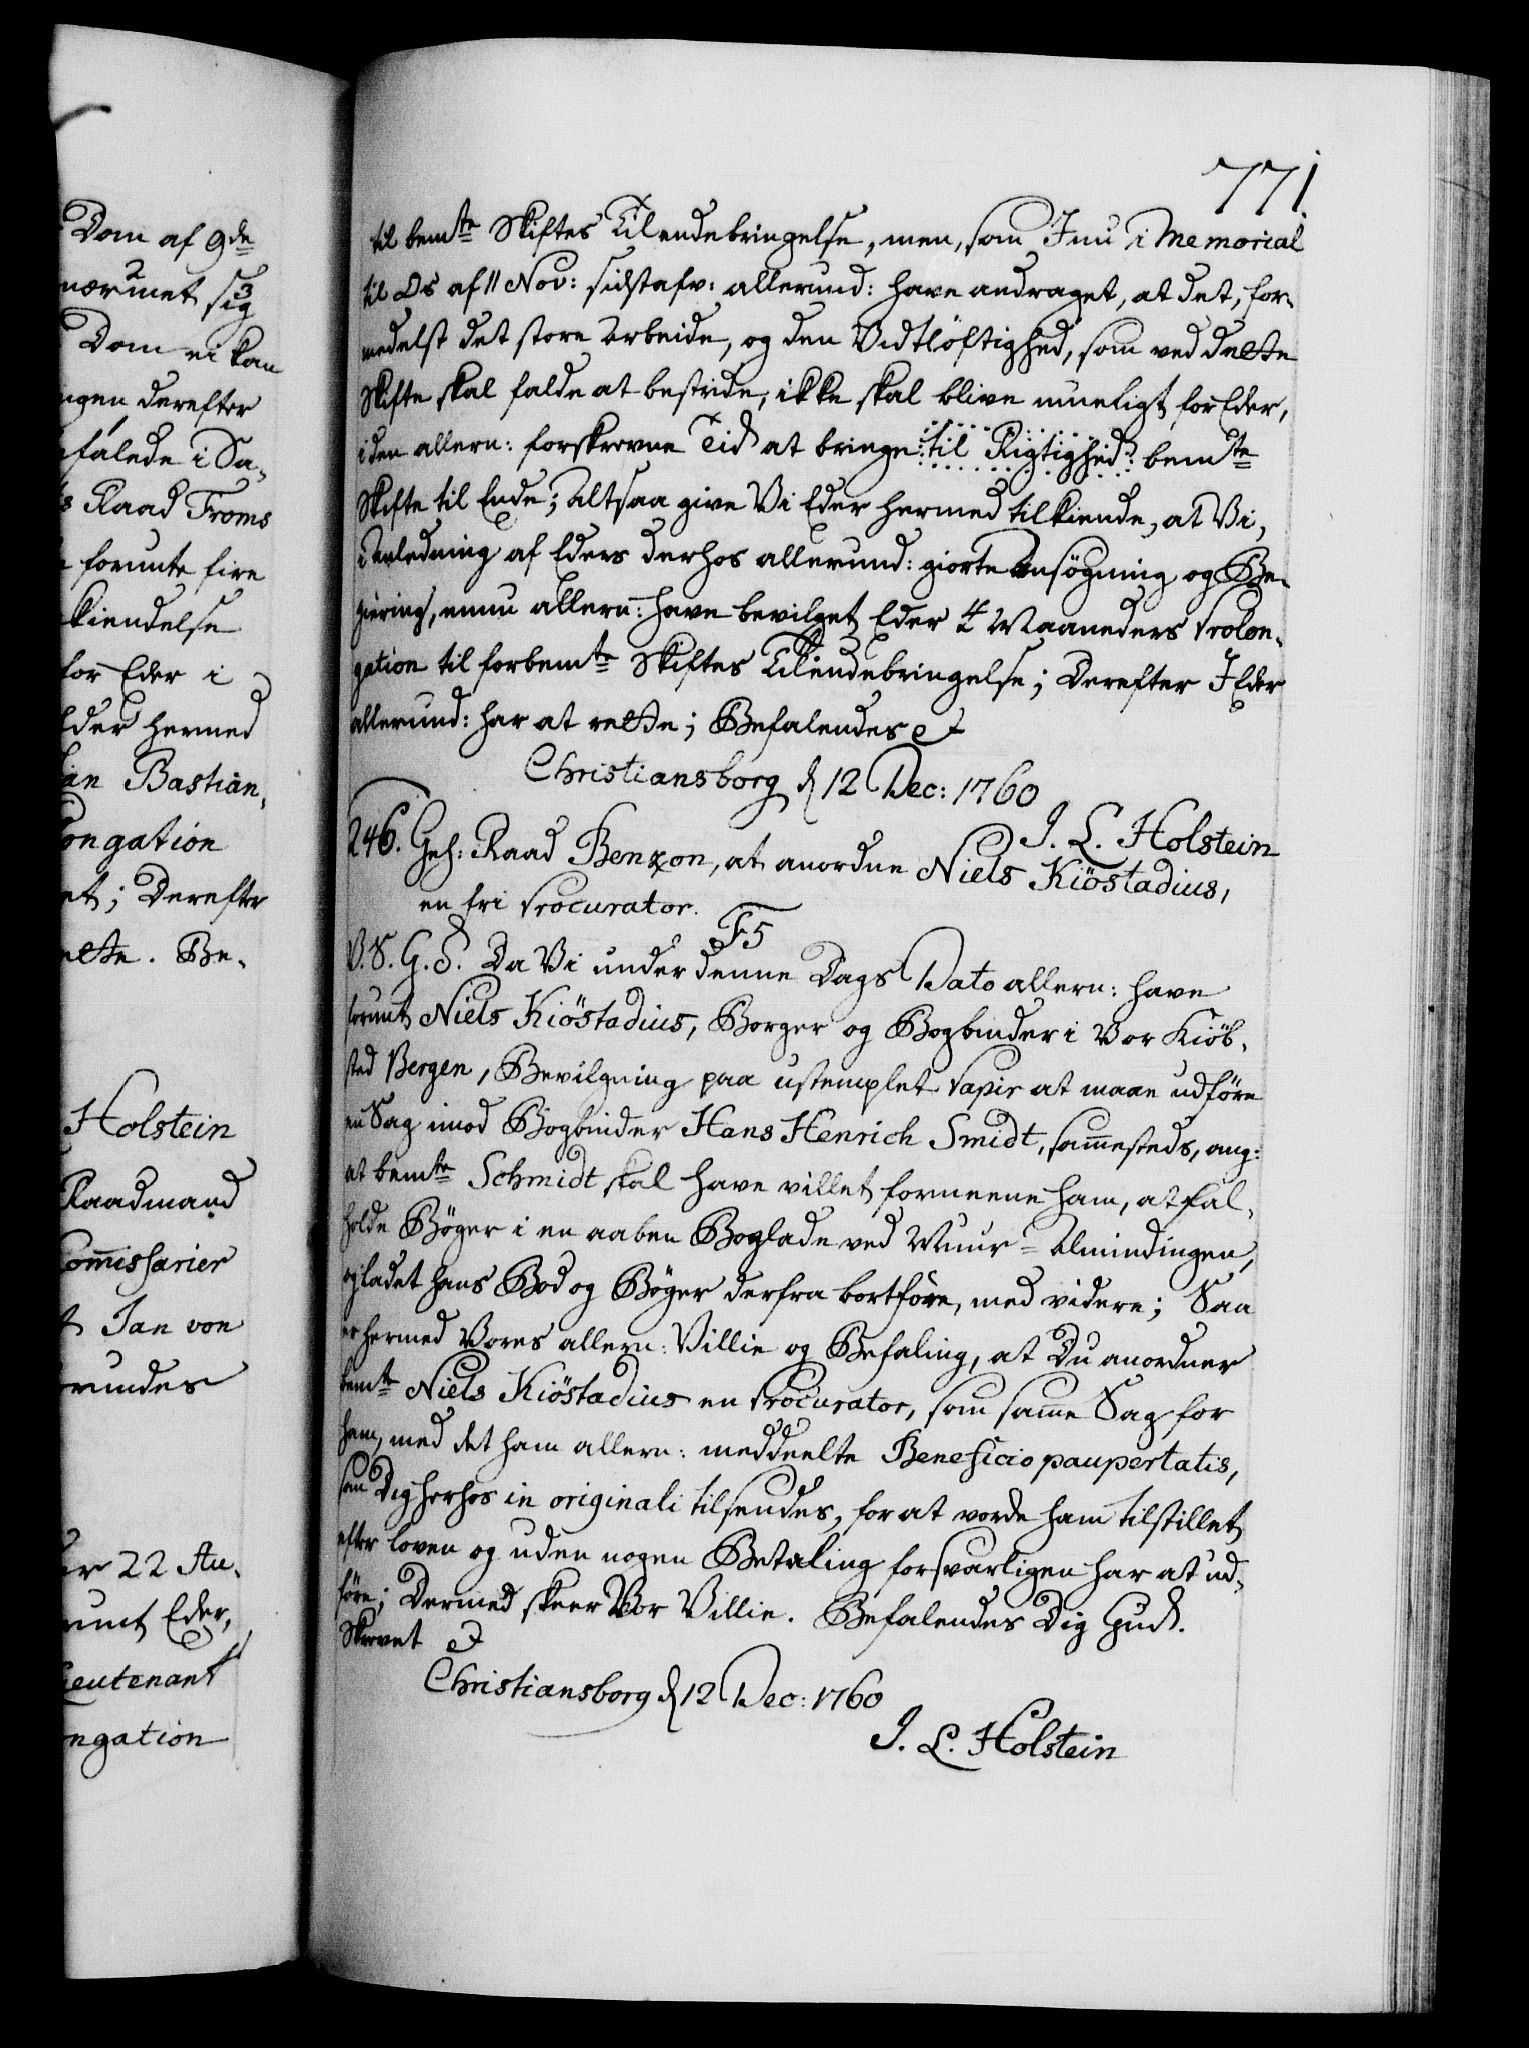 771
til bemte Skiftes Tilendebringelse, men, som I nu i Memorial
til Os af 11 Nov: sidstafv: allerund: have andraget, at det, for-
medelst det store Arbeide, og den Vidtlöftighed, som ved dette
Skifte skal falde at bestride, ikke skal blive mueligt for Eder,
i den allern: forskrevne Tid at bringe til Rigtighed bemte
Skifte til Ende; Altsaa give Vi Eder hermed tilkiende, at Vi,
i Anledning af Eders derhos allerund: giorte Ansögning og Be-
giering, ennu allern: have bevilget Eder 4 Maaneders Prolon-
gation til forbemte Skiftes Tilendebringelse; Derefter I Eder
allerund: har at rette; Befalendes etc
Christiansborg d 12 Dec: 1760
J. L. Holstein
246. Geh: Raad Benzon, at anordne Niels Kiöstadius,
en fri Procurator.
F5
V. S. G. T. Da Vi under denne Dags Dato allern: have
forunt Niels Kiöstadius, Borger og Bogbinder i Vor Kiöb-
sted Bergen, Bevilgning paa ustemplet Papir at maae udföre
en Sag imod Bogbinder Hans Henrich Smidt, sammesteds, ang:
at bemte Schmidt skal have villet formeene ham, at fal-
holde Böger i en aaben Boglade ved Muur-Almindingen,
og ladet hans Bod og Böger derfra bortföre, med videre; Saa
er hermed Vores allern: Villie og Befaling, at Du anordner
bemte Niels Kiöstadius en Procurator, som samme Sag for
ham, med det ham allern: meddeelte Beneficio paupertatis,
som Dig herhos in originali tilsendes, for at vorde ham tilstillet,
efter Loven og uden nogen Betaling forsvarligen har at ud-
före; Dermed skeer Vor Villie. Befalendes Dig Gud.
Skrevet etc
Christiansborg d 12 Dec: 1760
J. L. Holstein
Dom af 9de
nærmet sig
Dom ei kan
ngen derefter
falede i Sa-
s Raad Froms
forunte fire
kiendelse
for Eder i
Eder hermed
ian Bastian-
longation
et; Derefter
rette. Be-
Holstein
Raadmand
Commissarier
t Jan von
ar 22 Au-
runt Eder,
Lieutenant
ngation